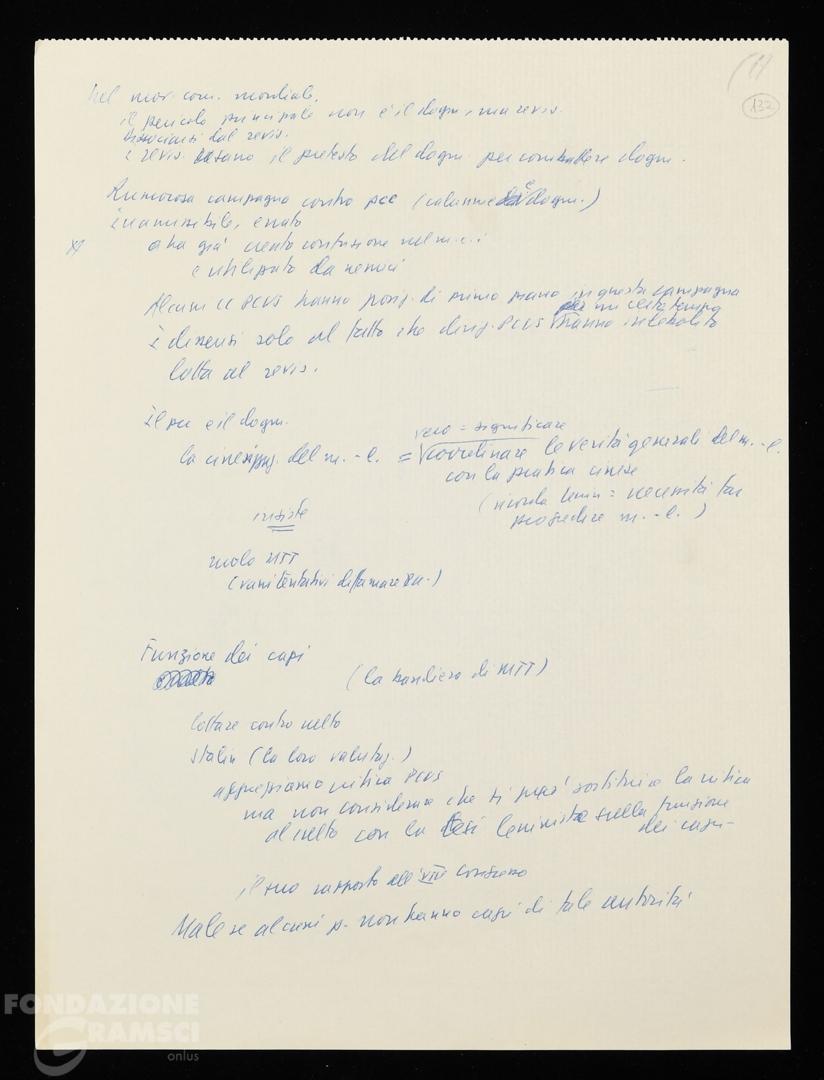 14
132
Nel mov. com. mondiale,
il pericolo principale non è il dogm., ma revis.
dal revis.
i revis. usano il pretesto del dogm. per combattere dogm.
Rumorosa campagna contro pcc (calunnie e dogm.)
è inammissibile, errato
e ha già creato confusione nel m.c.i
è utilizzato da nemici
Alcuni cc PCUS hanno posiz. di primo piano in questa campagna
per un certo tempo
solo al fatto che dirig. PCUS hanno indebolito
lotta al revis.
Il pcc e il dogm.
vero = significare
la cinesizzaz. del m.-l. = coordinare le verità generali del m.-l.
con la pratica cinese
(ricorda Lenin = necessità far
progredire m.-l.)
insiste
ruolo MTT
(vani tentativi diffamare)
Funzione dei capi
(la bandiera di MTT)
lottare contro culto
Stalin (la loro valutaz.)
apprezziamo critica PCUS
ma non considerare che si può sostituire la critica
al culto con la tesi leninista sulla funzione
dei capi-
il suo rapporto all'VIII Congresso
Male se alcuni p. non hanno capi di tale autorità
FONDAZIONE
GRAMSCI
onlus